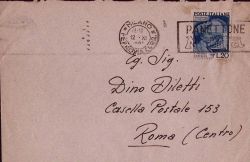 MILANO
12 · XI
PANETTONE
POSTE ITALIANE
L.20
Eg. Sig.
Dino Diletti
Casella Postale 153
Roma (Centro)